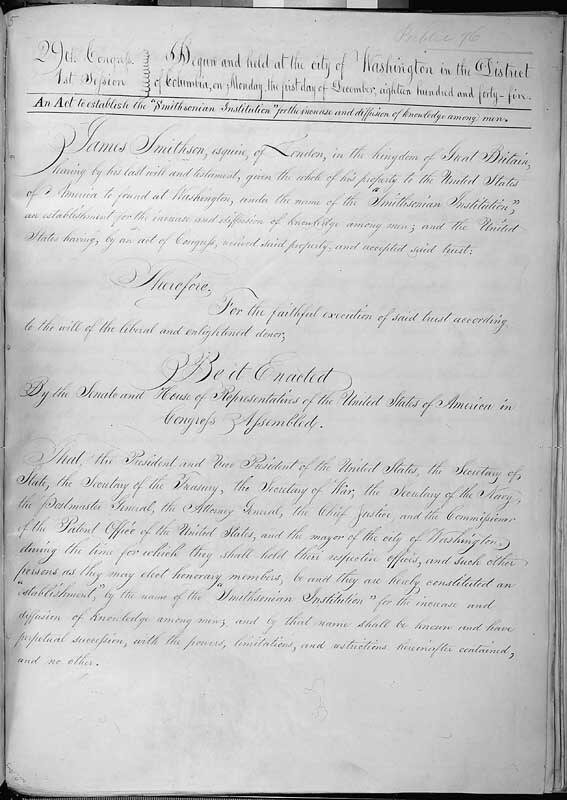 Public 76
29th Congress
1st Session
Begun and held at the city of Washington in the District
of Columbia, on Monday, the first day of December, eighteen hundred and forty-five.
An Act to establish the "Smithsonian Institution" for the increase and diffusion of knowledge among men.
James Smithson, esquire, of London, in the kingdom of Great Britain,
having by his last will and testament, given the whole of his property to the United States
of America to found at Washington, under the name of the "Smithsonian Institution",
an establishment for the increase and diffusion of knowledge among men; and the United
States having, by an act of Congress, received said property, and accepted said trust:
Therefore,
For the faithful execution of said trust according
to the will of the liberal and enlightened donor,
Be it Enacted
By the Senate and House of Representatives of the United States of America in
Congress Assembled.
That, the President and Vice President of the United States, the Secretary of
State, the Secretary of the Treasury, the Secretary of War, the Secretary of the Navy,
the Postmaster General, the Attorney General, the Chief Justice, and the Commissioner
of the Patent Office of the United States, and the mayor of the city of Washington,
during the time for which they shall hold their respective offices, and such other
persons as they may elect honorary members, be and they are hereby constituted an
"establishment," by the name of the "Smithsonian Institution" for the increase and
diffusion of knowledge among men; and by that name shall be known and have
perpetual succession, with the powers, limitations, and restrictions hereinafter contained,
and no other.